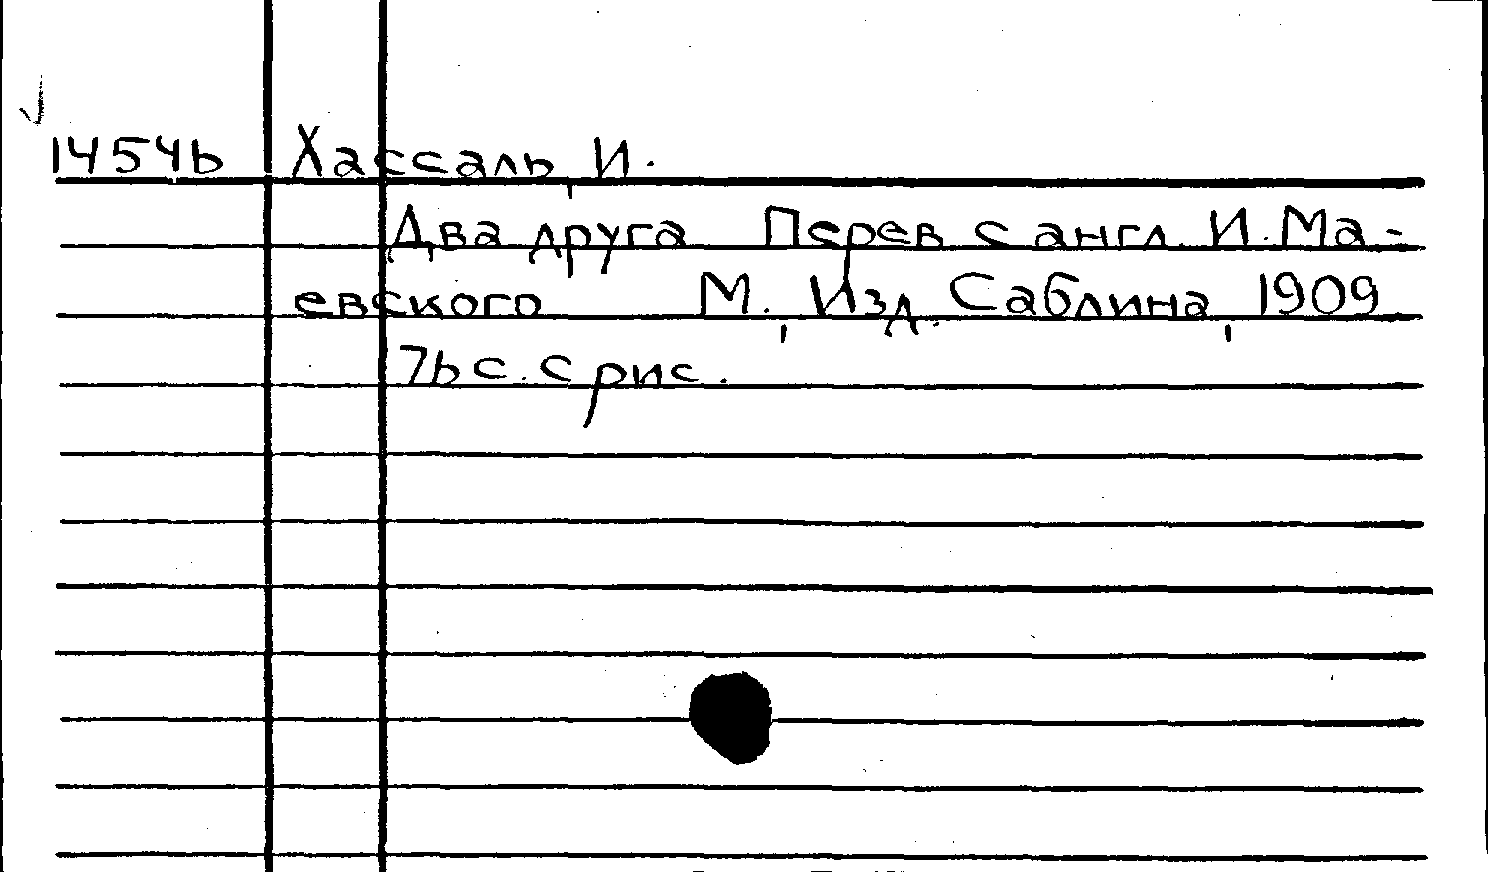 14546 Хассаль, И.
Два друга Перев с англ. И. Ма-
евского М., Изд. Саблина, 1909
76 с. с рис.